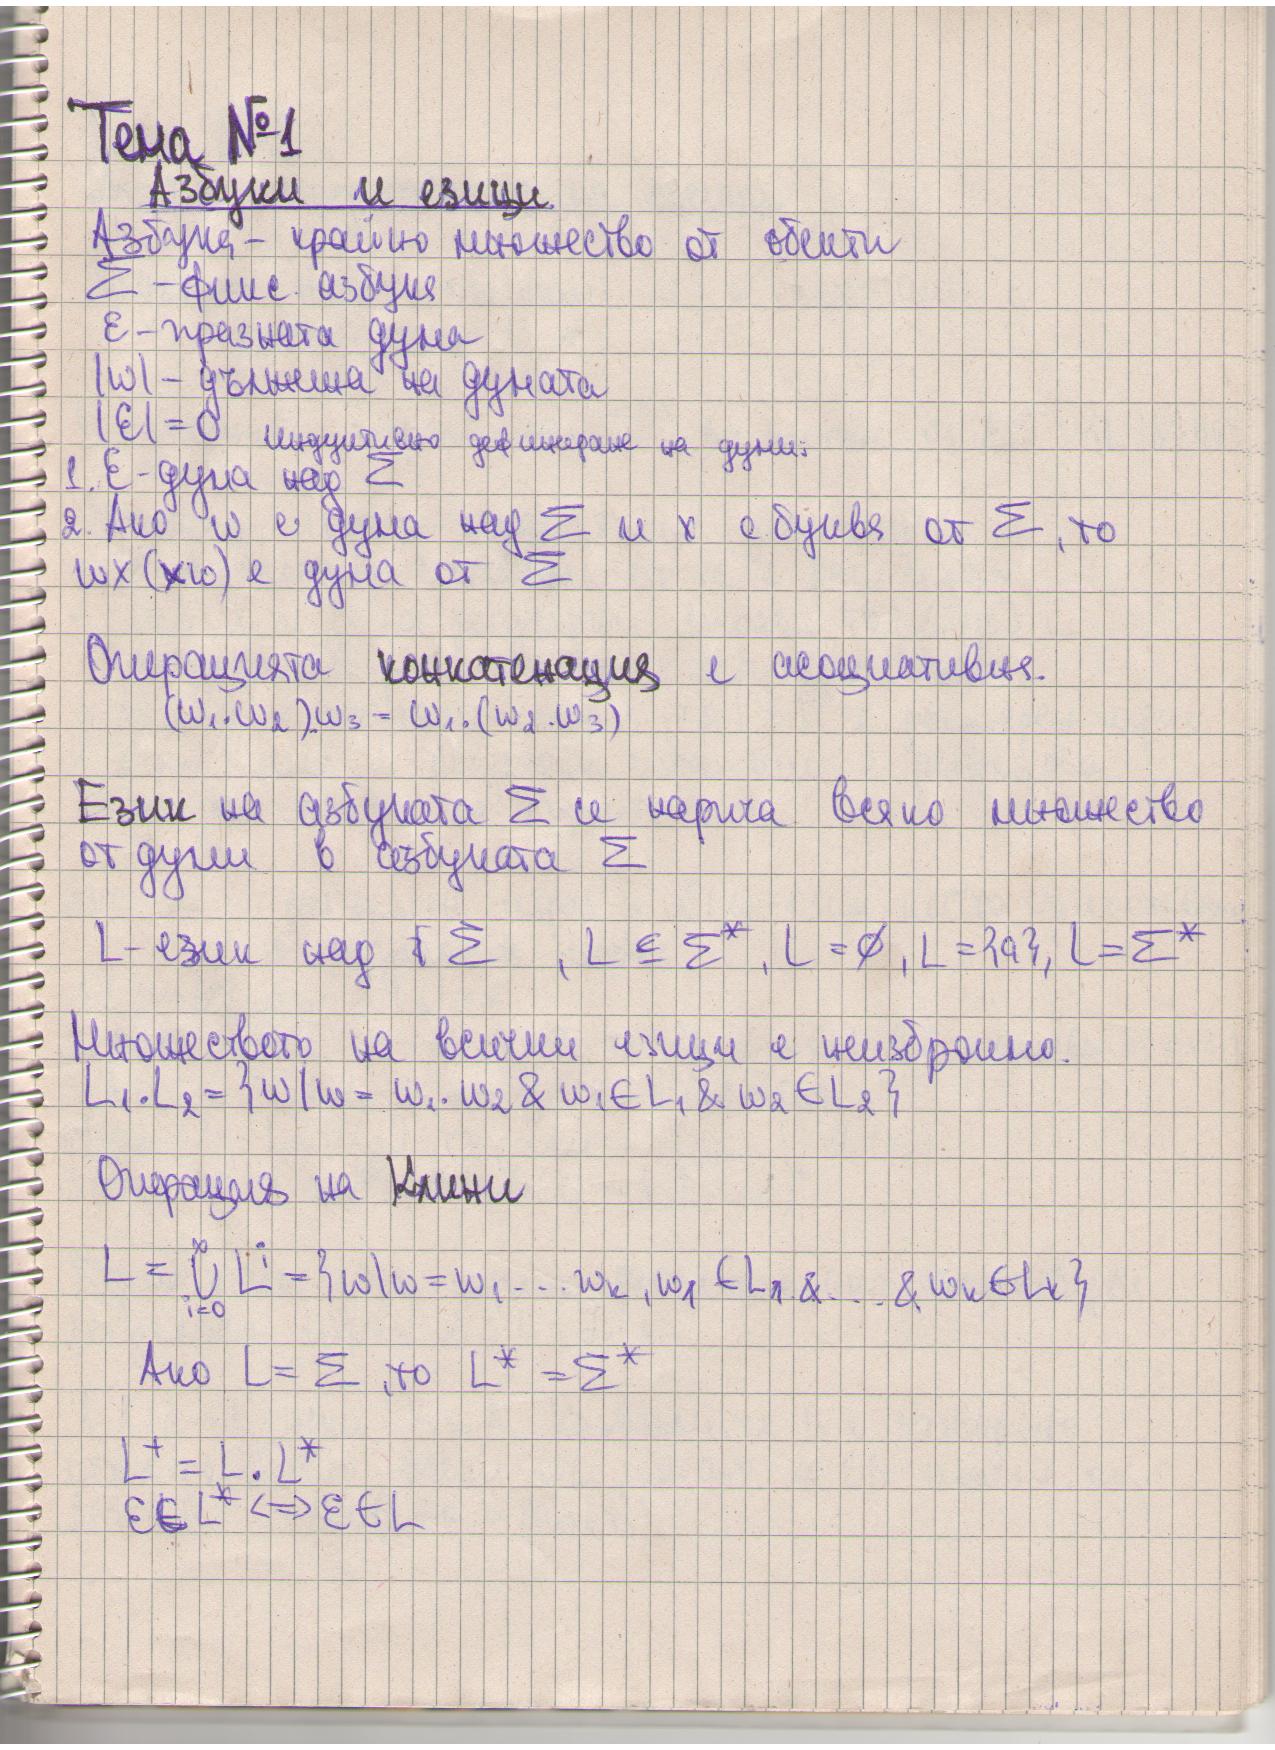 Тема №1
Азбуки и езици
Азбука - крайно множество от обекти
Σ - фикс. азбука
ε - празната дума
|w| - дължина на думата
|ε| = 0
индуктивно дефиниране на думи:
1. ε - дума над Σ
2. Ако w е дума над Σ и x е буква от Σ, то
wx (xw) е дума от Σ
Операцията конкатенация е асоциативна.
(w₁.w₂).w₃ = w₁.(w₂.w₃)
Език на азбуката Σ се нарича всяко множество
от думи в азбуката Σ
L - език над Σ , L ⊆ Σ*, L = ∅, L = {a}, L = Σ*
Множеството на всички езици е неизброимо.
L₁.L₂ = {w | w = w₁.w₂ & w₁ ∈ L₁ & w₂ ∈ L₂}
Операция на Клини
L = ∞ ∪ i=0 Lⁱ = {w | w = w₁ ... wₖ, w₁ ∈ L₁ & ... & wₖ ∈ Lₖ}
Ако L = Σ, то L* = Σ*
L⁺ = L . L*
ε ∈ L* <=> ε ∈ L